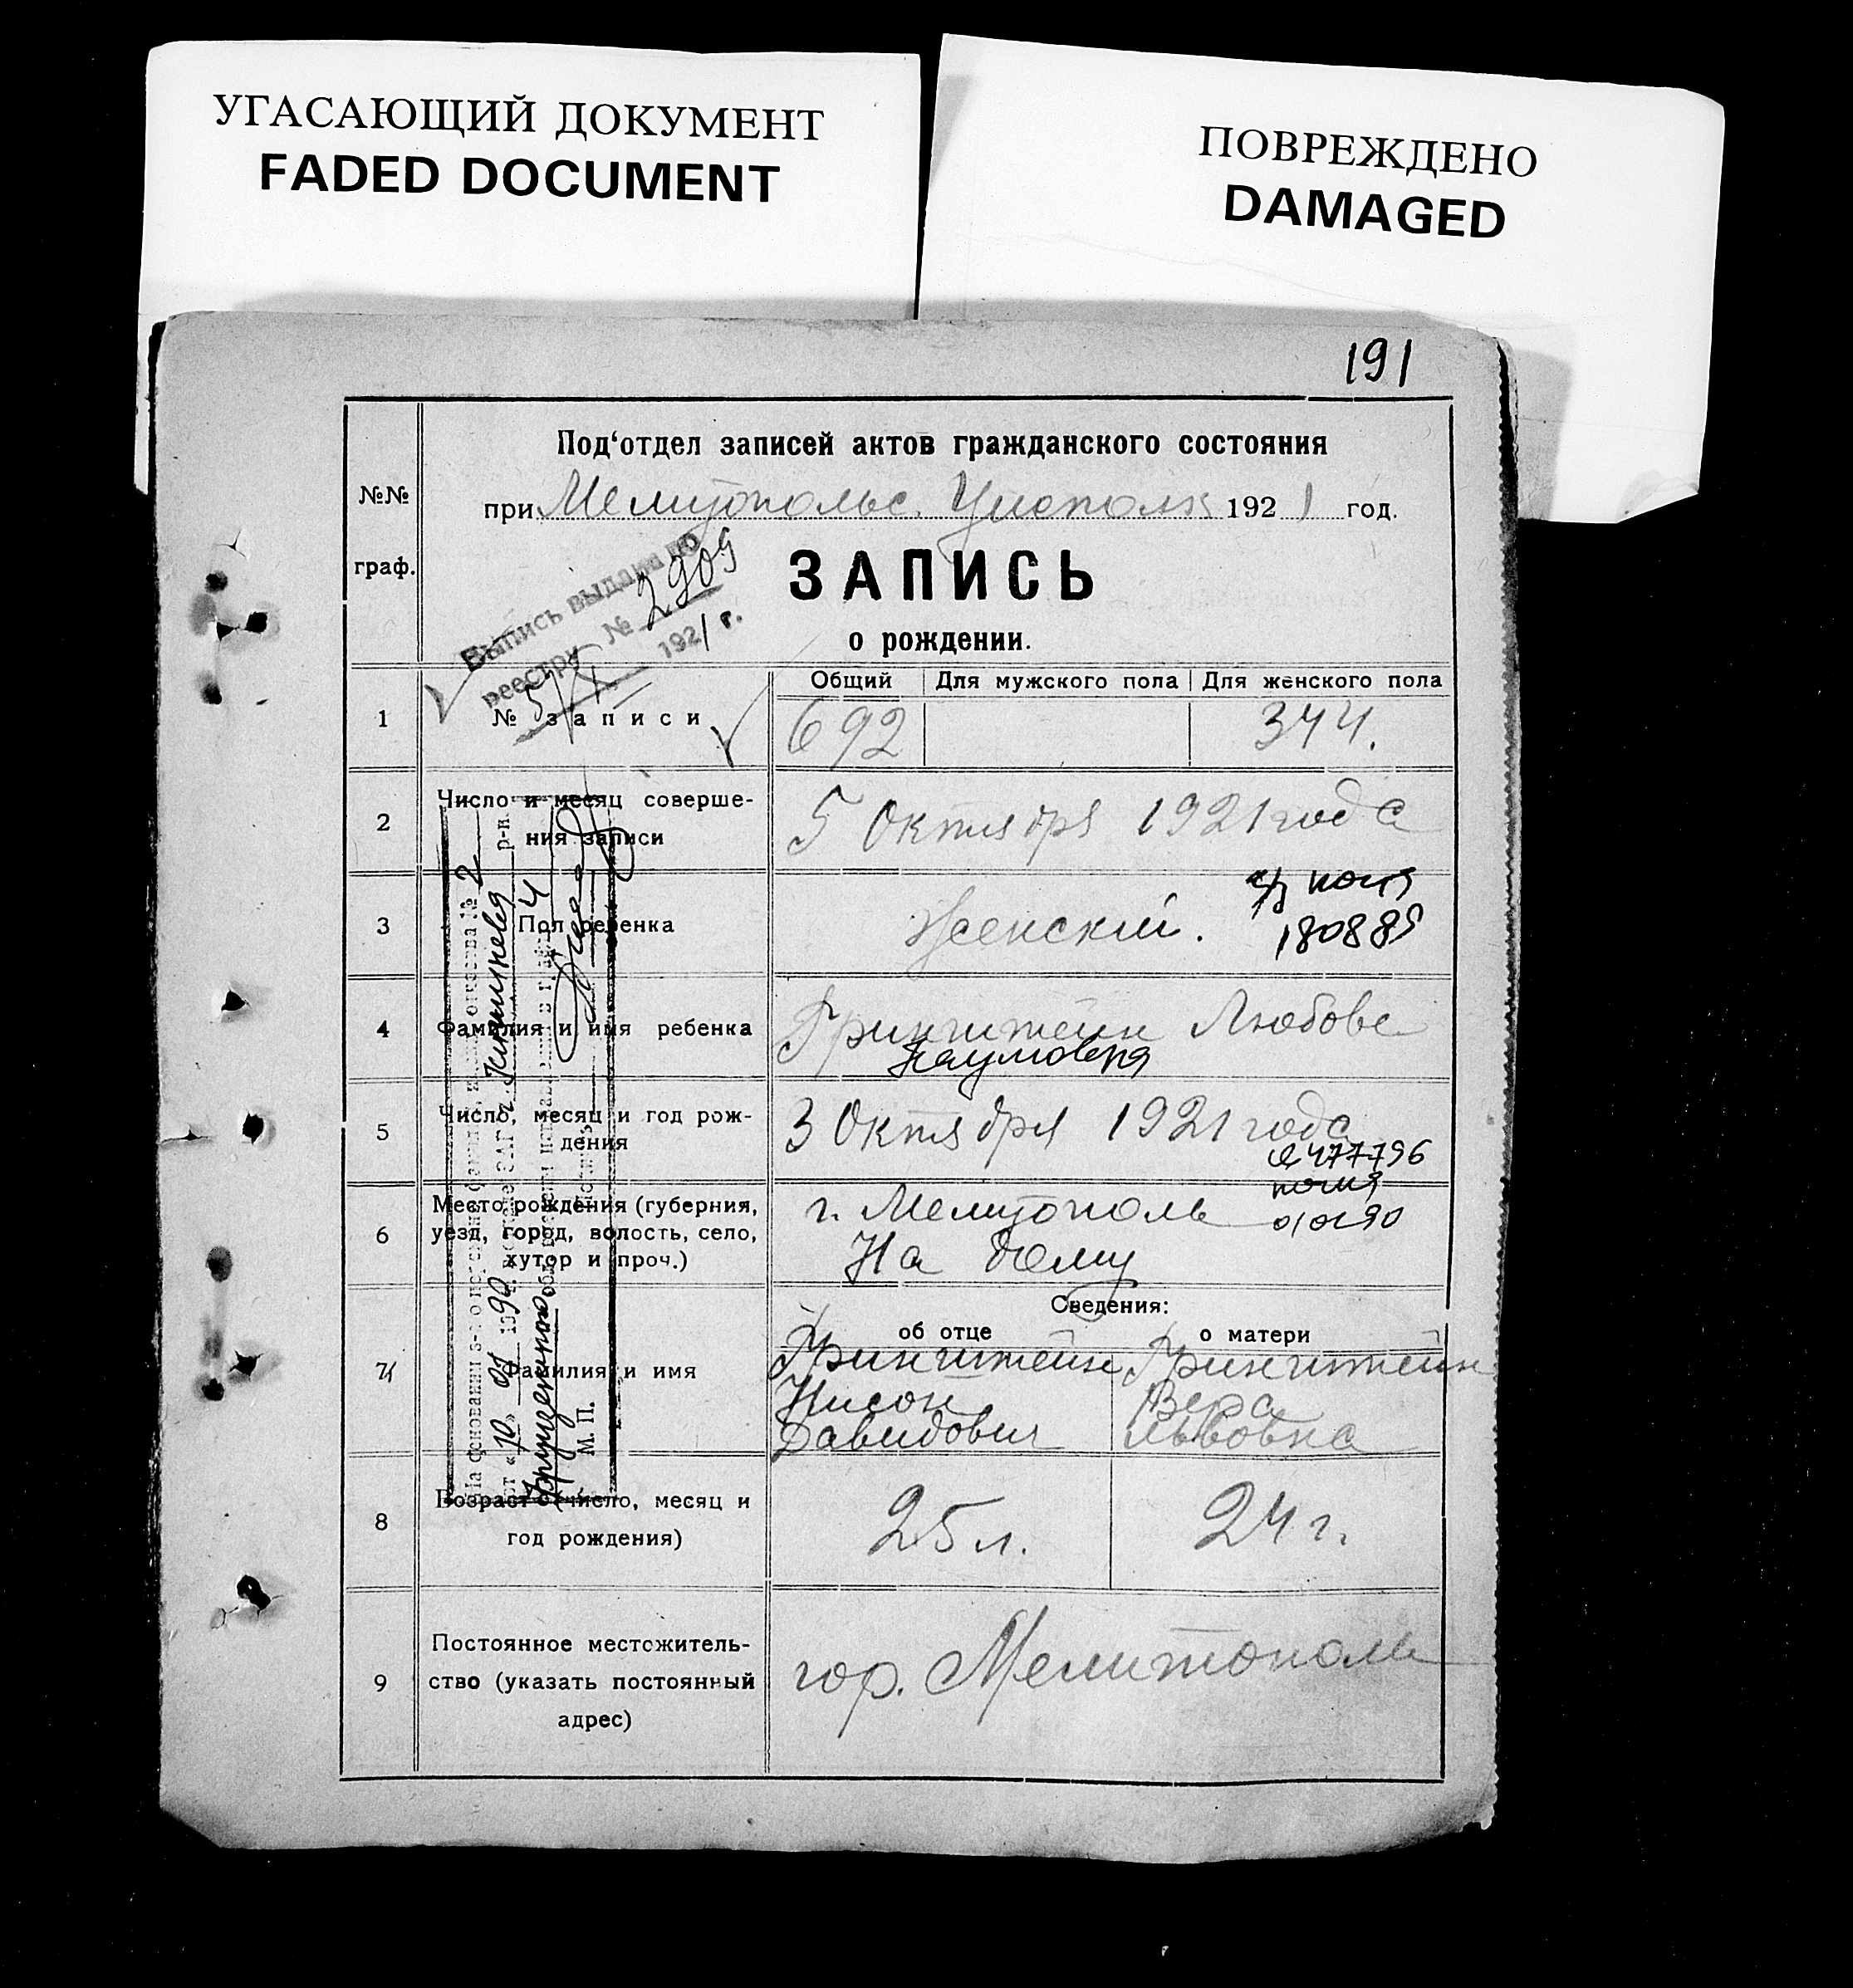 УГАСАЮЩИЙ ДОКУМЕНТ
FADED DOCUMENT
ПОВРЕЖДЕНО
DAMAGED
191
№№
граф.
Под‘отдел записей актов гражданского состояния
при Мелитопольс. Уисполк 1921 год.
ЗАПИСЬ
о рождении.
Выпись выдана по
реестру № 2909
5/X 1921 г.
1
№ записи
Общий
Для мужского пола
Для женского пола
692
344.
2
Число и месяц соверше-
ния записи
5 Октября 1921 года
3
Пол ребенка
Женский.
180885
4
Фамилия и имя ребенка
Гринштейн Любовь
Наумовна
5
Число, месяц и год рож-
дения
3 Октября 1921 года
477796
6
Место рождения (губерния,
уезд, город, волость, село,
хутор и проч.)
г. Мелитополь
На дому
Сведения:
об отце
о матери
7
Фамилия и имя
Гринштейн
Нисон
Давидович
Гринштейн
Вера
Львовна
8
Возраст (число, месяц и
год рождения)
25 л.
24 г.
9
Постоянное местожитель-
ство (указать постоянный
адрес)
гор. Мелитополь
На основании
отчества № 2
Кишинева
р-на
М. П.